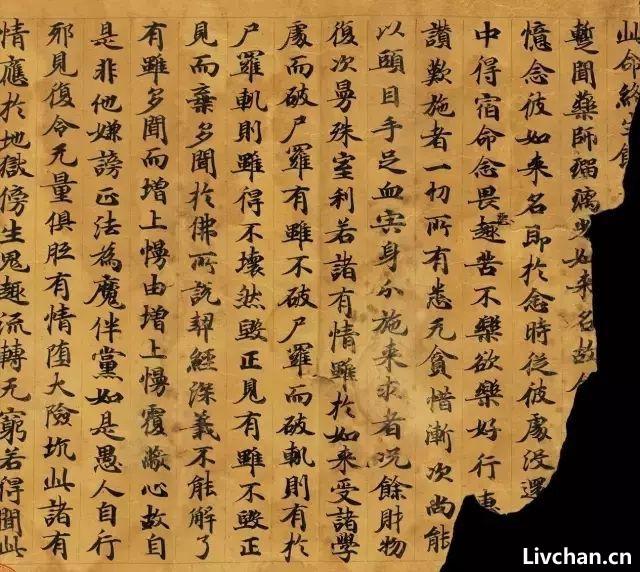 此命終生
蹔聞藥師瑠璃光如来名故
憶念彼如来名即於念時從彼處没還
中得宿命念畏惡趣苦不樂欲樂好行惠
讃歎施者一切所有悉无貪惜漸次尚能
以頭目手足血肉身分施来求者况餘財物
復次曼殊室利若諸有情雖於如来受諸學
處而破尸羅有雖不破尸羅而破軌則有於
尸羅軌則雖得不壞然毀正見有雖不毀正
見而棄多聞於佛所說契經深義不能解了
有雖多聞而增上慢由增上慢覆蔽心故自
是非他嫌謗正法為魔伴黨如是愚人自行
邪見復令无量俱胝有情堕大險坑此諸有
情應於地獄傍生鬼趣流轉无窮若得聞此
Livchan.cn